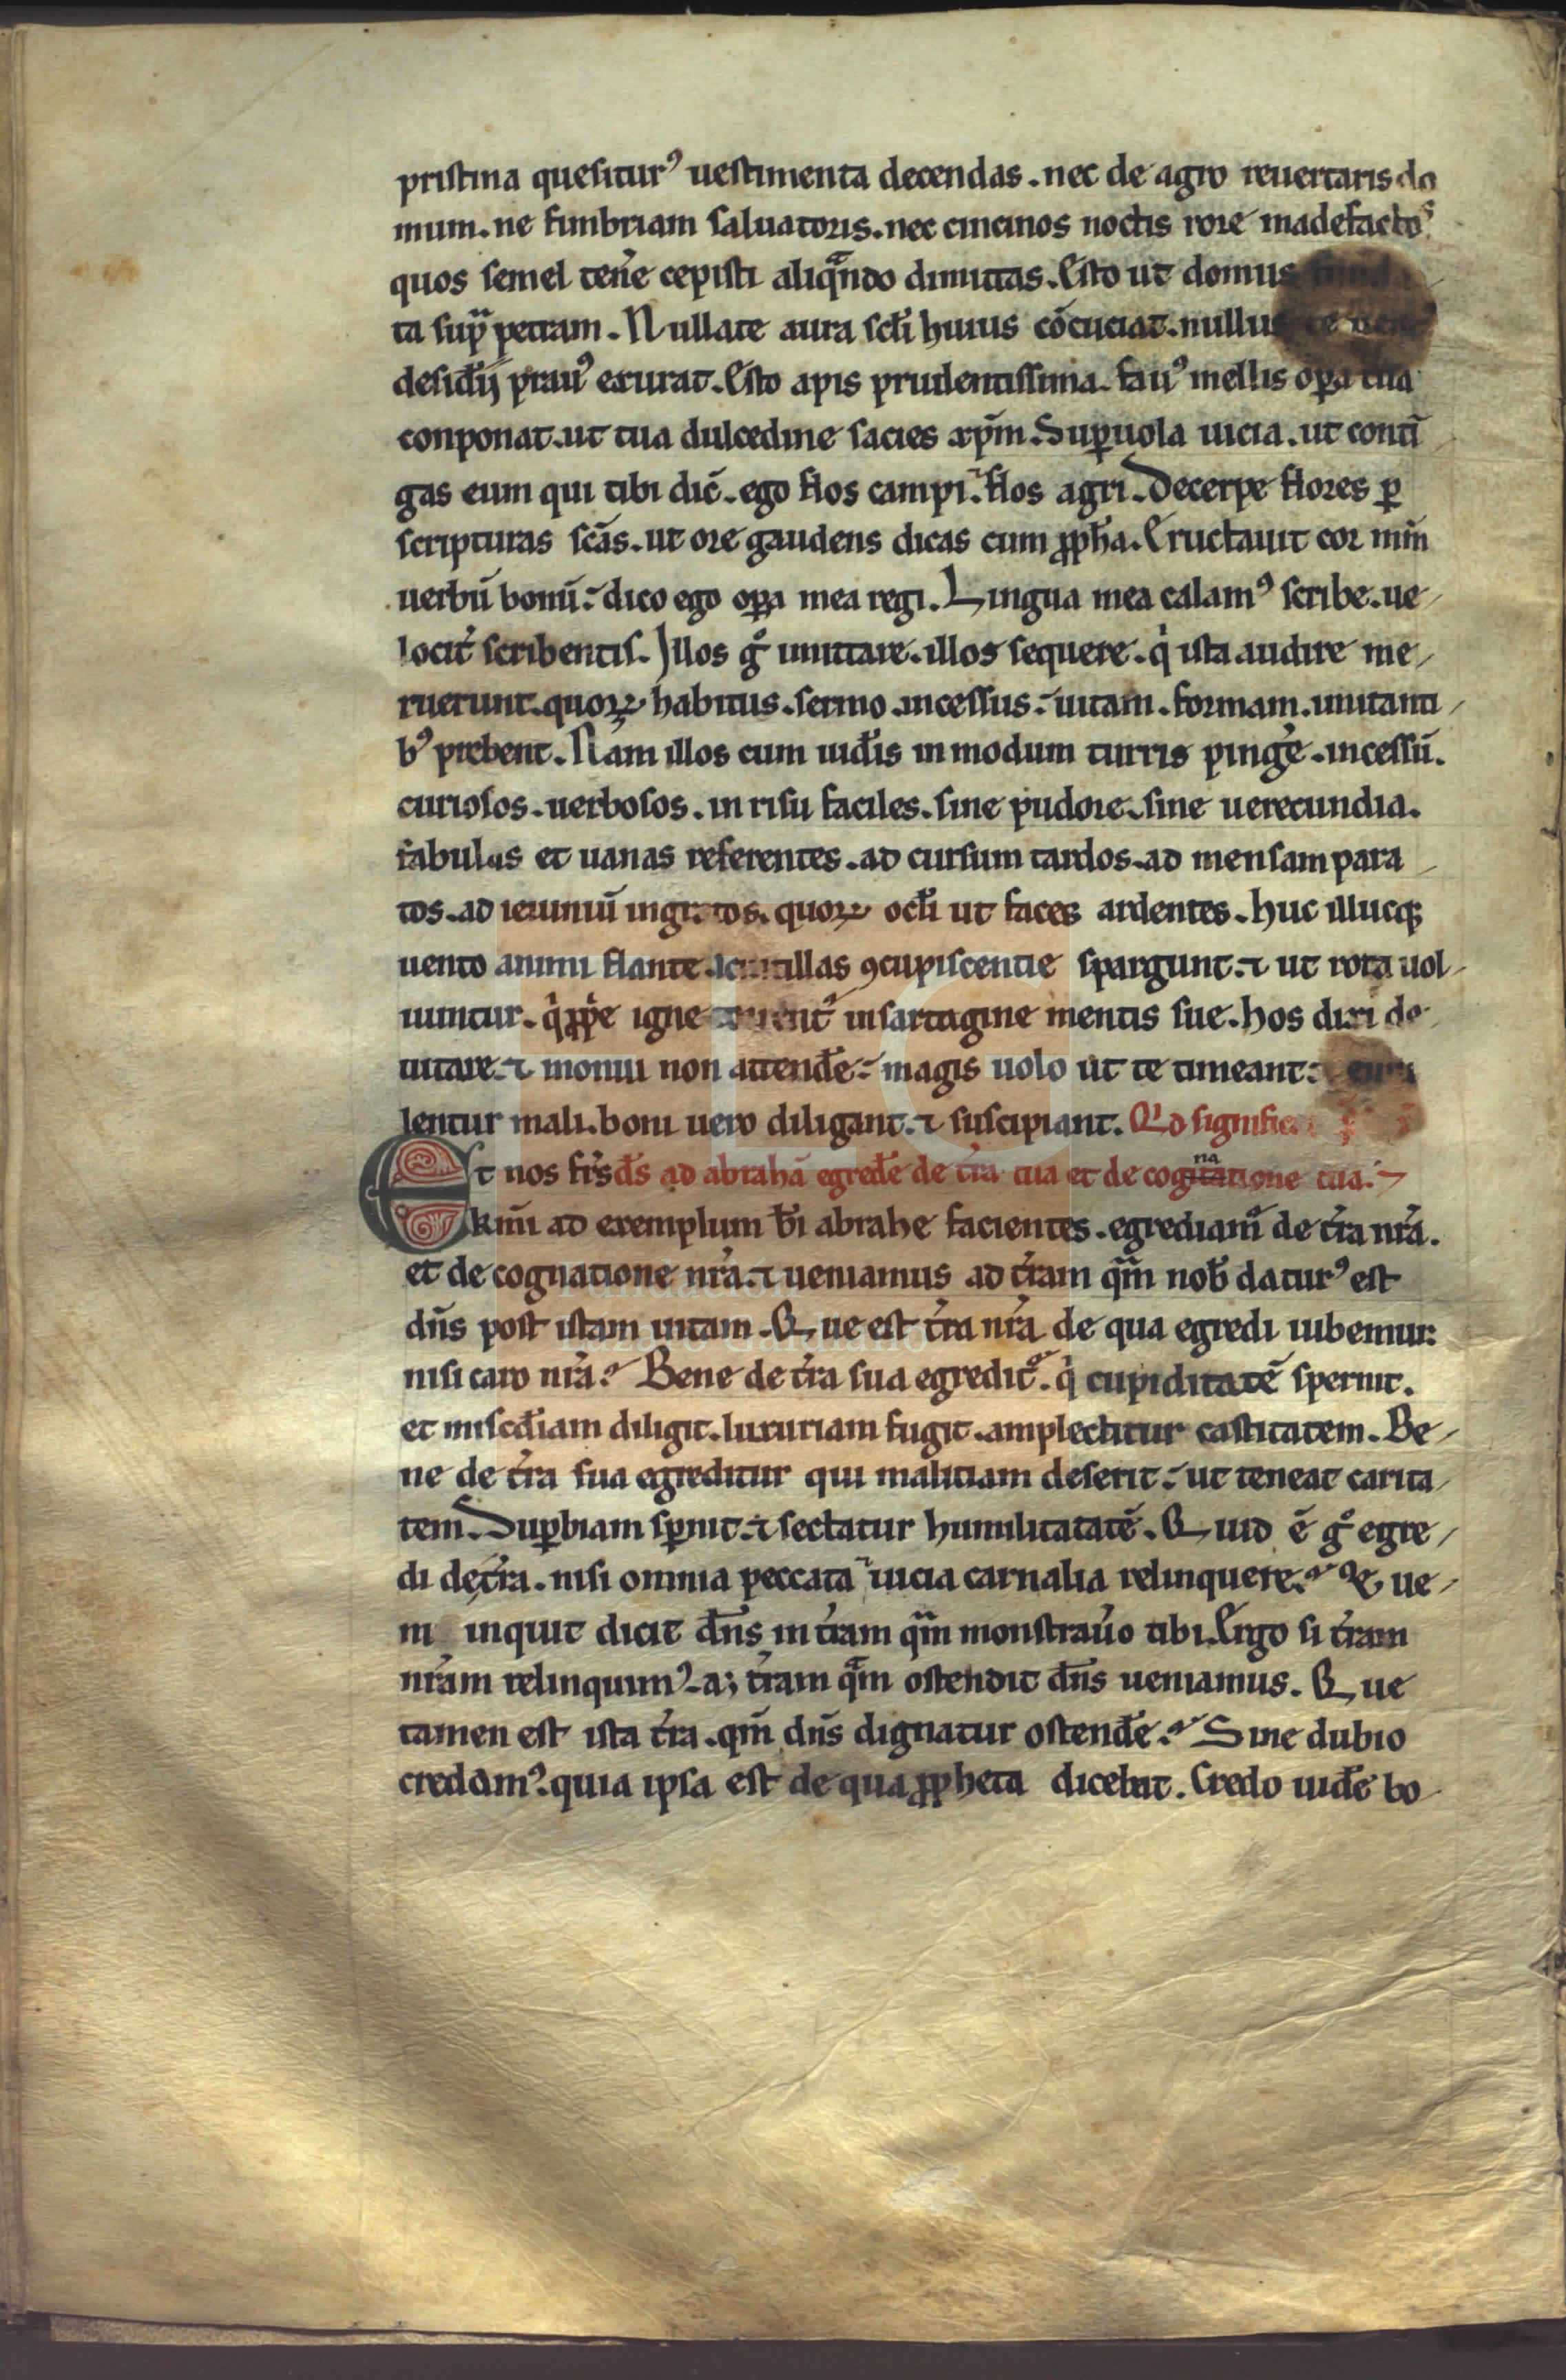 pristina quesitur⁹ uestimenta decendas . nec de agro reuertaris do
mum . ne fimbriam saluatoris . nec cincinos noctis rore madefactos
quos semel teńe cepisti aliqndo dimittas . Esto ut domus
ta sup petram . Nullate aura scłi huius cōcuciat . nullus te
desiđij prau⁹ exurat . Esto apis prudentissima . fau⁹ mellis opa tua
conponat . ut tua dulcedine sacies xp̄m . Supuola uicia . ut conti
gas eum qui tibi dic̄ . ego flos campi ⁊ flos agri . Decerpe flores p
scripturas sc̄as . ut ore gaudens dicas cum ppħa . Eructauit cor mm̄
uerbū bonū ⁊ dico ego opa mea regi . Lingua mea calam⁹ scribe . ue
locit̄ scribentis . Illos g° imittare . illos sequere . q̇ ista audire me
ruerunt . quoꝝ habitus . sermo . incessus ⁊ uitam . formam . imitanti
b⁹ prebent . Nam illos cum uiđis in modum turris pinge̍ . incessū .
curiosos . uerbosos . in risu faciles . sine pudore . sine uerecundia .
fabulas et uanas referentes . ad cursum tardos . ad mensam para
tos . ad ieiuniū ingratos . quoꝝ ocłi ut faces ardentes . huc illucq;
uento animi flante scintillas ꝯcupiscentie spargunt . ⁊ ut rota uol
uuntur . q̇ppe igne torrent᷑ in sartagine mentis sue . hos dixi de
uitare . ⁊ moniti non attenđe ⁊ magis uolo ut te timeant ⁊
lentur mali . boni uero diligant . ⁊ suscipiant . Qđ signific
Et nos fr̄s đs ad abrahā egređe de t̄ra tua et de cognatatione tua ⁊
kmī ad exemplum b̄i abrahe facientes . egrediam᷑ de t̄ra nr̄a .
et de cognatione nr̄a . ⁊ ueniamus ad t̄ram qm̄ nob̄ datur⁹ est
dn̄s post istam uitam . Que est t̄ra nr̄a de qua egredi iubemur
nisi caro nr̄a ? Bene de t̄ra sua egredit᷑ . q̇ cupiditatē spernit .
et misc̄điam diligit . luxuriam fugit . amplectitur castitatem . Be
ne de t̄ra sua egreditur qui malitiam deserit ⁊ ut teneat carita
tem . Supbiam spnit . ⁊ sectatur humilitatatē . Quid ē g° egre
di de t̄ra . nisi omnia peccata ⁊ uicia carnalia relinquere ? Et ue
ni inquit dicit dn̄s in t̄ram qm̄ monstraūo tibi . Ergo si t̄ram
nr̄am relinquim⁹ . a; t̄ram qm̄ ostendit dn̄s ueniamus . Que
tamen est ista t̄ra . qm̄ dn̄s dignatur ostenđe ? Sine dubio
credam⁹ . quia ipsa est de qua ppheta dicebat . Credo uiđe bo